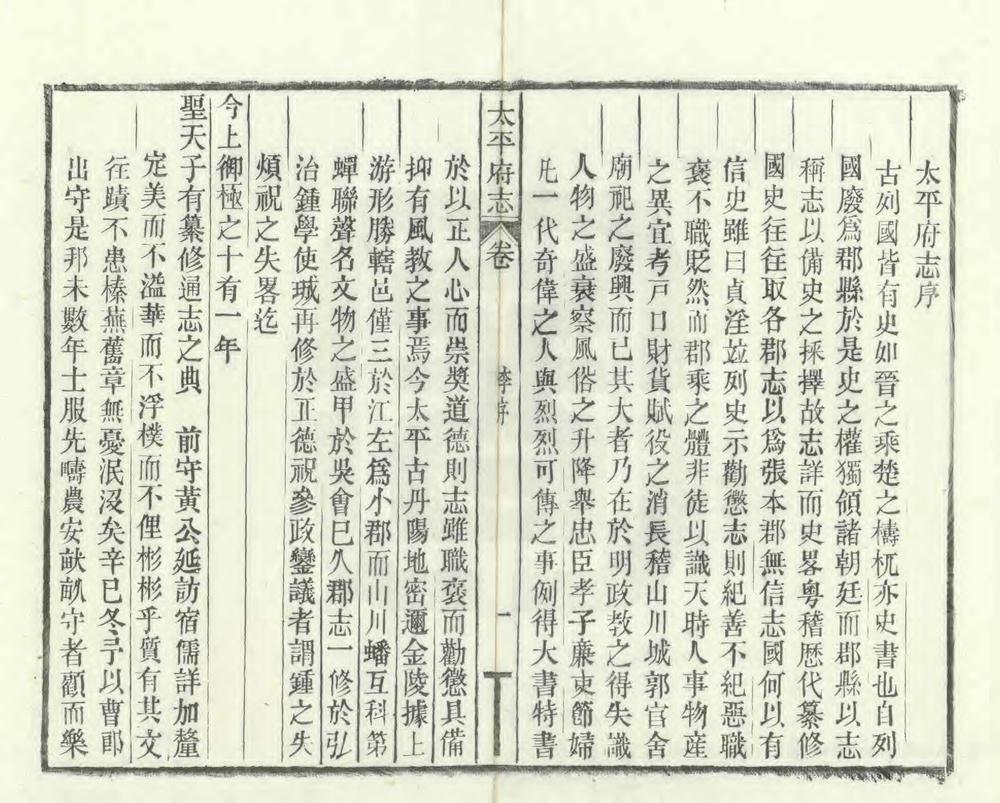 太平府志序
古列國皆有史如晉之乘楚之檮杌亦史書也自列
國廢爲郡縣於是史之權獨領諸朝廷而郡縣以志
稱志以備史之採擇故志詳而史畧粵稽歷代纂修
國史往往取各郡志以爲張本郡無信志國何以有
信史雖曰貞淫竝列史示勸懲志則紀善不紀惡職
褒不職貶然而郡乘之體非徒以識天時人事物産
之異宜考戸口財貨賦役之消長稽山川城郭官舍
廟祀之廢興而已其大者乃在於明政教之得失識
人物之盛衰察風俗之升降舉忠臣孝子廉吏節婦
凡一代奇偉之人與烈烈可傳之事例得大書特書
太平府志
卷
李序
一
於以正人心而崇獎道德則志雖職褒而勸懲具備
抑有風教之事焉今太平古丹陽地密邇金陵據上
游形勝轄邑僅三於江左爲小郡而山川蟠互科第
蟬聯聲名文物之盛甲於吳會巳久郡志一修於弘
治鍾學使珹再修於正德祝參政鑾議者謂鍾之失
煩祝之失畧迄
今上御極之十有一年
聖天子有纂修通志之典　前守黃公延訪宿儒詳加釐
定美而不溢華而不浮樸而不俚彬彬乎質有其文
往蹟不患榛蕪舊章無憂泯沒矣辛巳冬予以曹郎
出守是邦未數年士服先疇農安畎畝守者顧而樂